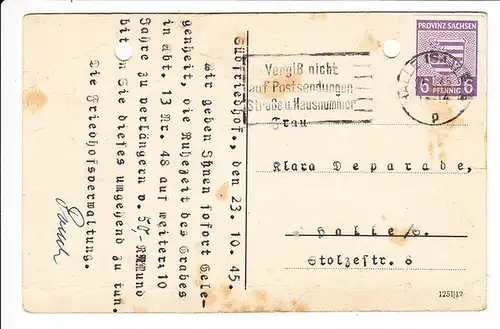 Südfriedhof., den 23. 10. 45.
Wir geben Ihnen sofort Gele-
genheit, die Ruhezeit des Grabes
in Abt. 13 Nr. 48 auf weiter. 10
Jahre zu verlängern v. 50, RM und
bit n Sie dieses umgehend zu tun.
Die Friedhofsverwaltung.
Vergiß nicht
auf Postsendungen
Straße u. Hausnummer
HALLE (SAALE)
p
PROVINZ SACHSEN
6 PFENNIG 6
Frau
Klara Deparade,
Halle/S.
Stolzestr. 8
1251|12